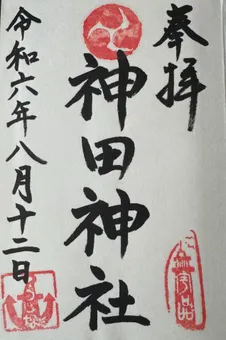 奉拝
神田神社
令和六年八月十二日